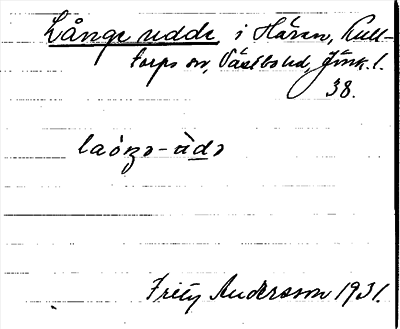 Långe udde i Håren, Kull-
torps sn, Västbo hd, Jönk. l.
38.
laòŋə-ùdə
Fritz Andersson 1931.